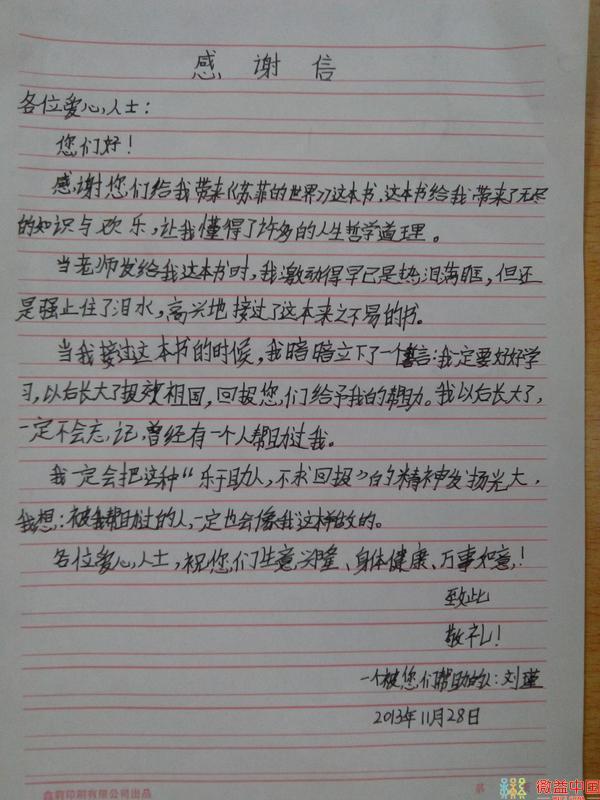 感谢信
各位爱心人士：
您们好！
感谢您们给我带来《苏菲的世界》这本书，这本书给我带来了无尽
的知识与欢乐，让我懂得了许多的人生哲学道理。
当老师发给我这本书时，我激动得早已是热泪满眶，但还
是强止住了泪水，高兴地接过了这本来之不易的书。
当我接过这本书的时候，我暗暗立下了一个誓言：我一定要好好学
习，以后长大了报效祖国，回报您们给予我的帮助。我以后长大了，
一定不会忘记，曾经有一个人帮助过我。
我一定会把这种“乐于助人，不求回报”的精神发扬光大，
我想：被我帮助过的人，一定也会像我这样做的。
各位爱心人士，祝您们生意兴隆、身体健康、万事如意！
致此
敬礼！
一个被您们帮助的人：刘瑾
2013年11月28日
印刷有限公司出品
第
微益中国